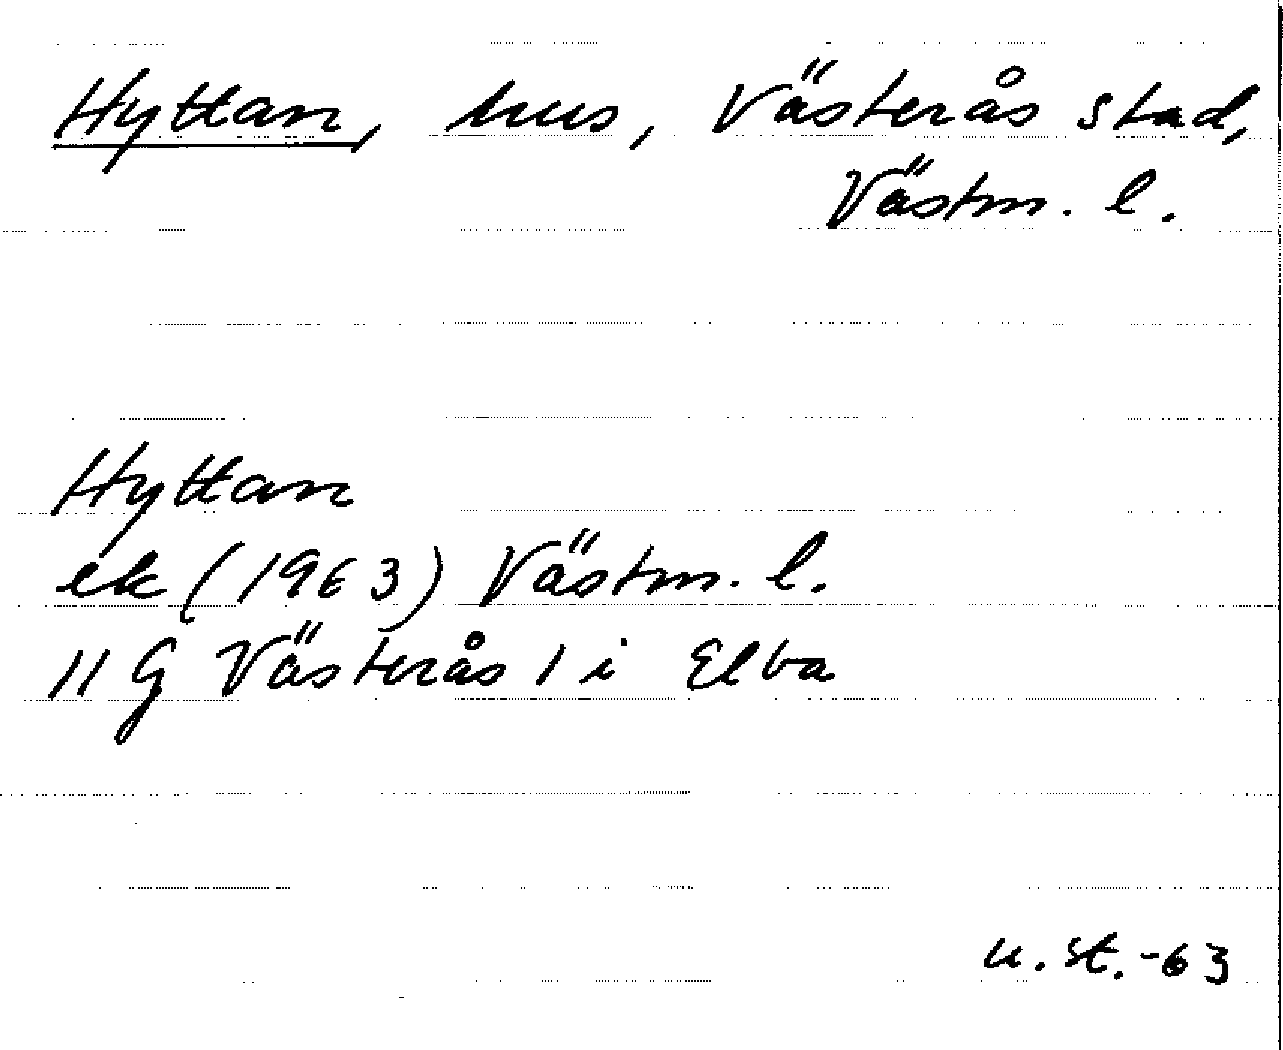 Hyttan, hus, Västerås stad,
Västm. l.
Hyttan
ek (1963) Västm. l.
11 G Västerås 1 i Elba
u. st. -63